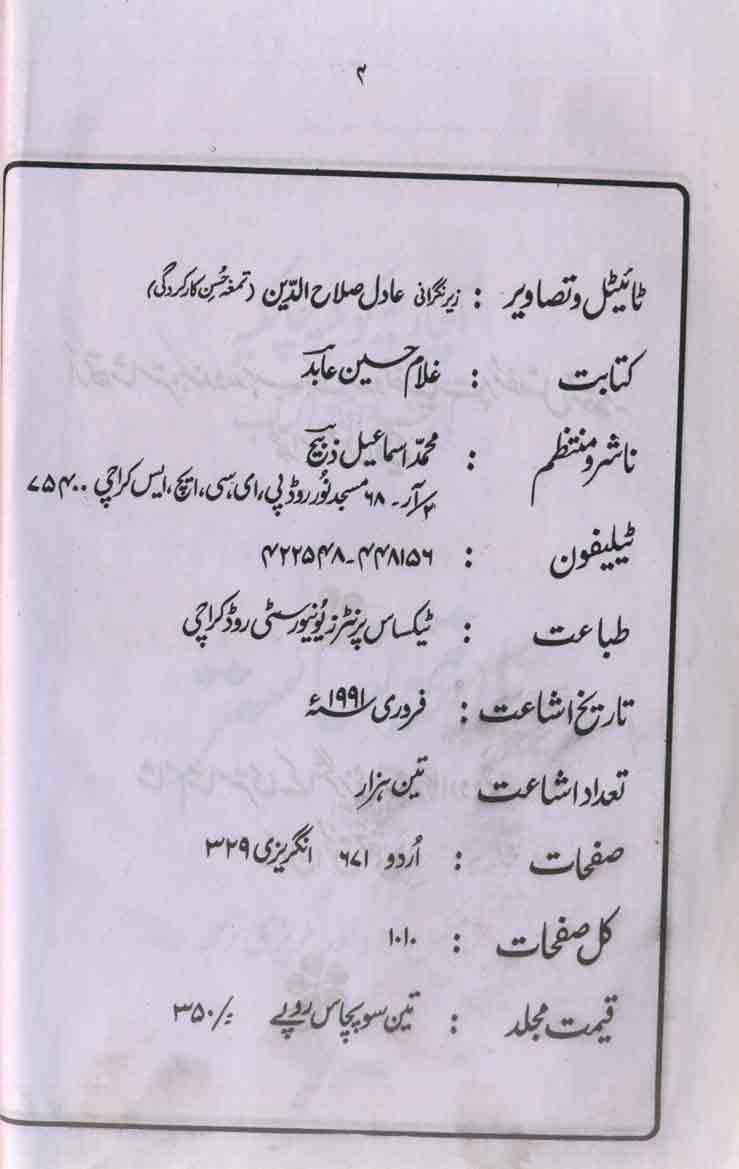 ۴
ٹائیٹل و تصاویر : زیر نگرانی عادل صلاح الدّین (تمغہ حُسنِ کارکردگی)
کتابت : غلام حسین عابد
ناشر و منتظم : محمّد اسماعیل ذبیح
۲/آر۔ ۶۸ مسجد نُور روڈ پی، ای، سی، ایچ، ایس کراچی ۷۵۴۰۰
ٹیلیفون : ۴۴۸۱۵۶۔۴۲۲۵۴۸
طباعت : ٹیکساس پرنٹرز یُونیورسٹی روڈ کراچی
تاریخ اشاعت : فروری ۱۹۹۱ء
تعداد اشاعت تین ہزار
صفحات : اُردو ۶۷۱ انگریزی ۳۲۹
کل صفحات : ۱۰۱۰
قیمت مجلد : تین سو پچاس روپے ۳۵۰/=